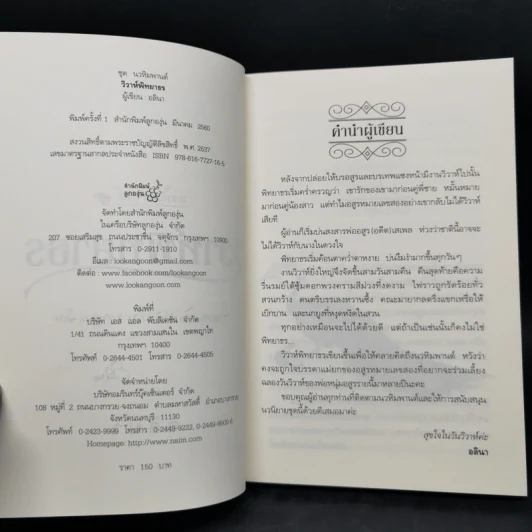 ชุด นวหิมพานต์
วิวาห์พิทยาธร
ผู้เขียน อลินา
พิมพ์ครั้งที่ 1 สำนักพิมพ์ลูกองุ่น มีนาคม 2560
สงวนลิขสิทธิ์ตามพระราชบัญญัติลิขสิทธิ์ พ.ศ. 2537
เลขมาตรฐานสากลประจำหนังสือ ISBN 978-616-7727-16-5
สำนักพิมพ์
ลูกองุ่น
จัดทำโดยสำนักพิมพ์ลูกองุ่น
ในเครือบริษัทลูกองุ่น จำกัด
207 ซอยเสริมสุข ถนนประชาชื่น จตุจักร กรุงเทพฯ 10900
โทรสาร 0-2911-1910
อีเมล : lookangoon@gmail.com
ติดต่อ : www.facebook.com/lookangoon
www.lookangoon.com
พิมพ์ที่
บริษัท เอส แอล พับลิเคชัน จำกัด
1/41 ถนนดินแดง แขวงสามเสนใน เขตพญาไท
กรุงเทพฯ 10400
โทรศัพท์ 0-2644-4501 โทรสาร 0-2644-4505
จัดจำหน่ายโดย
บริษัทอมรินทร์บุ๊คเซ็นเตอร์ จำกัด
108 หมู่ที่ 2 ถนนบางกรวย-จงถนอม ตำบลมหาสวัสดิ์ อำเภอบางกรวย
จังหวัดนนทบุรี 11130
โทรศัพท์ 0-2423-9999 โทรสาร 0-2449-9222, 0-2449-9500-6
Homepage: http://www.naiin.com
ราคา 150 บาท
คำนำผู้เขียน
หลังจากปล่อยให้บรอสูรและบรเทพแซงหน้ามีงานวิวาห์ไปนั้น
พิทยาธรเริ่มคร่ำครวญว่า เขารักของเขามาก่อนคู่พี่ชาย หมั้นหมาย
มาก่อนคู่น้องสาว แต่ทำไมอสูรหมายเลขสองอย่างเขากลับไม่ได้วิวาห์
เสียที
ผู้อ่านก็เริ่มบ่นสงสารพ่ออสูร (อดีต) เสเพล ห่วงว่าชาตินี้อาจจะ
ไม่ได้วิวาห์กับนางในดวงใจ
พิทยาธรเริ่มค้อนตาคว่ำตาหงาย บ่นงึมงำมากขึ้นทุกวันๆ
งานวิวาห์ยิ่งใหญ่จึงจัดขึ้นสามวันสามคืน คืนสุดท้ายคือความ
รื่นรมย์ใต้ซุ้มดอกพวงครามสีม่วงทั้งดงาม ไฟราวถูกขึงร้อยทั่ว
สวนกว้าง ดนตรีบรรเลงหวานซึ้ง คณะมายากลตรึงแขกเหรื่อให้
เบิกบาน และนกยูงที่หงุดหงิดในสวน
ทุกอย่างเหมือนจะไปได้ด้วยดี แต่ถ้าเป็นเช่นนั้นก็คงไม่ใช่
พิทยาธร...
วิวาห์พิทยาธรเขียนขึ้นเพื่อให้คลายคิดถึงนวหิมพานต์ หวังว่า
คงจะถูกใจบรรดาแม่ยกของอสูรหมายเลขสองที่อยากจะร่วมเลี้ยง
ฉลองวันวิวาห์ของพ่อหนุ่มอสูรรายนี้มาหลายเป็นอะคะ
ขอบคุณผู้อ่านทุกท่านที่ติดตามนวหิมพานต์และให้การสนับสนุน
นวนิยายชุดนี้ด้วยดีเสมอมาค่ะ
สุขใจในวันวิวาห์ค่ะ
อลินา